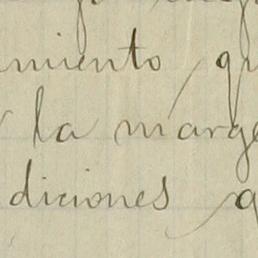 miento, qu
la marge
diciones q